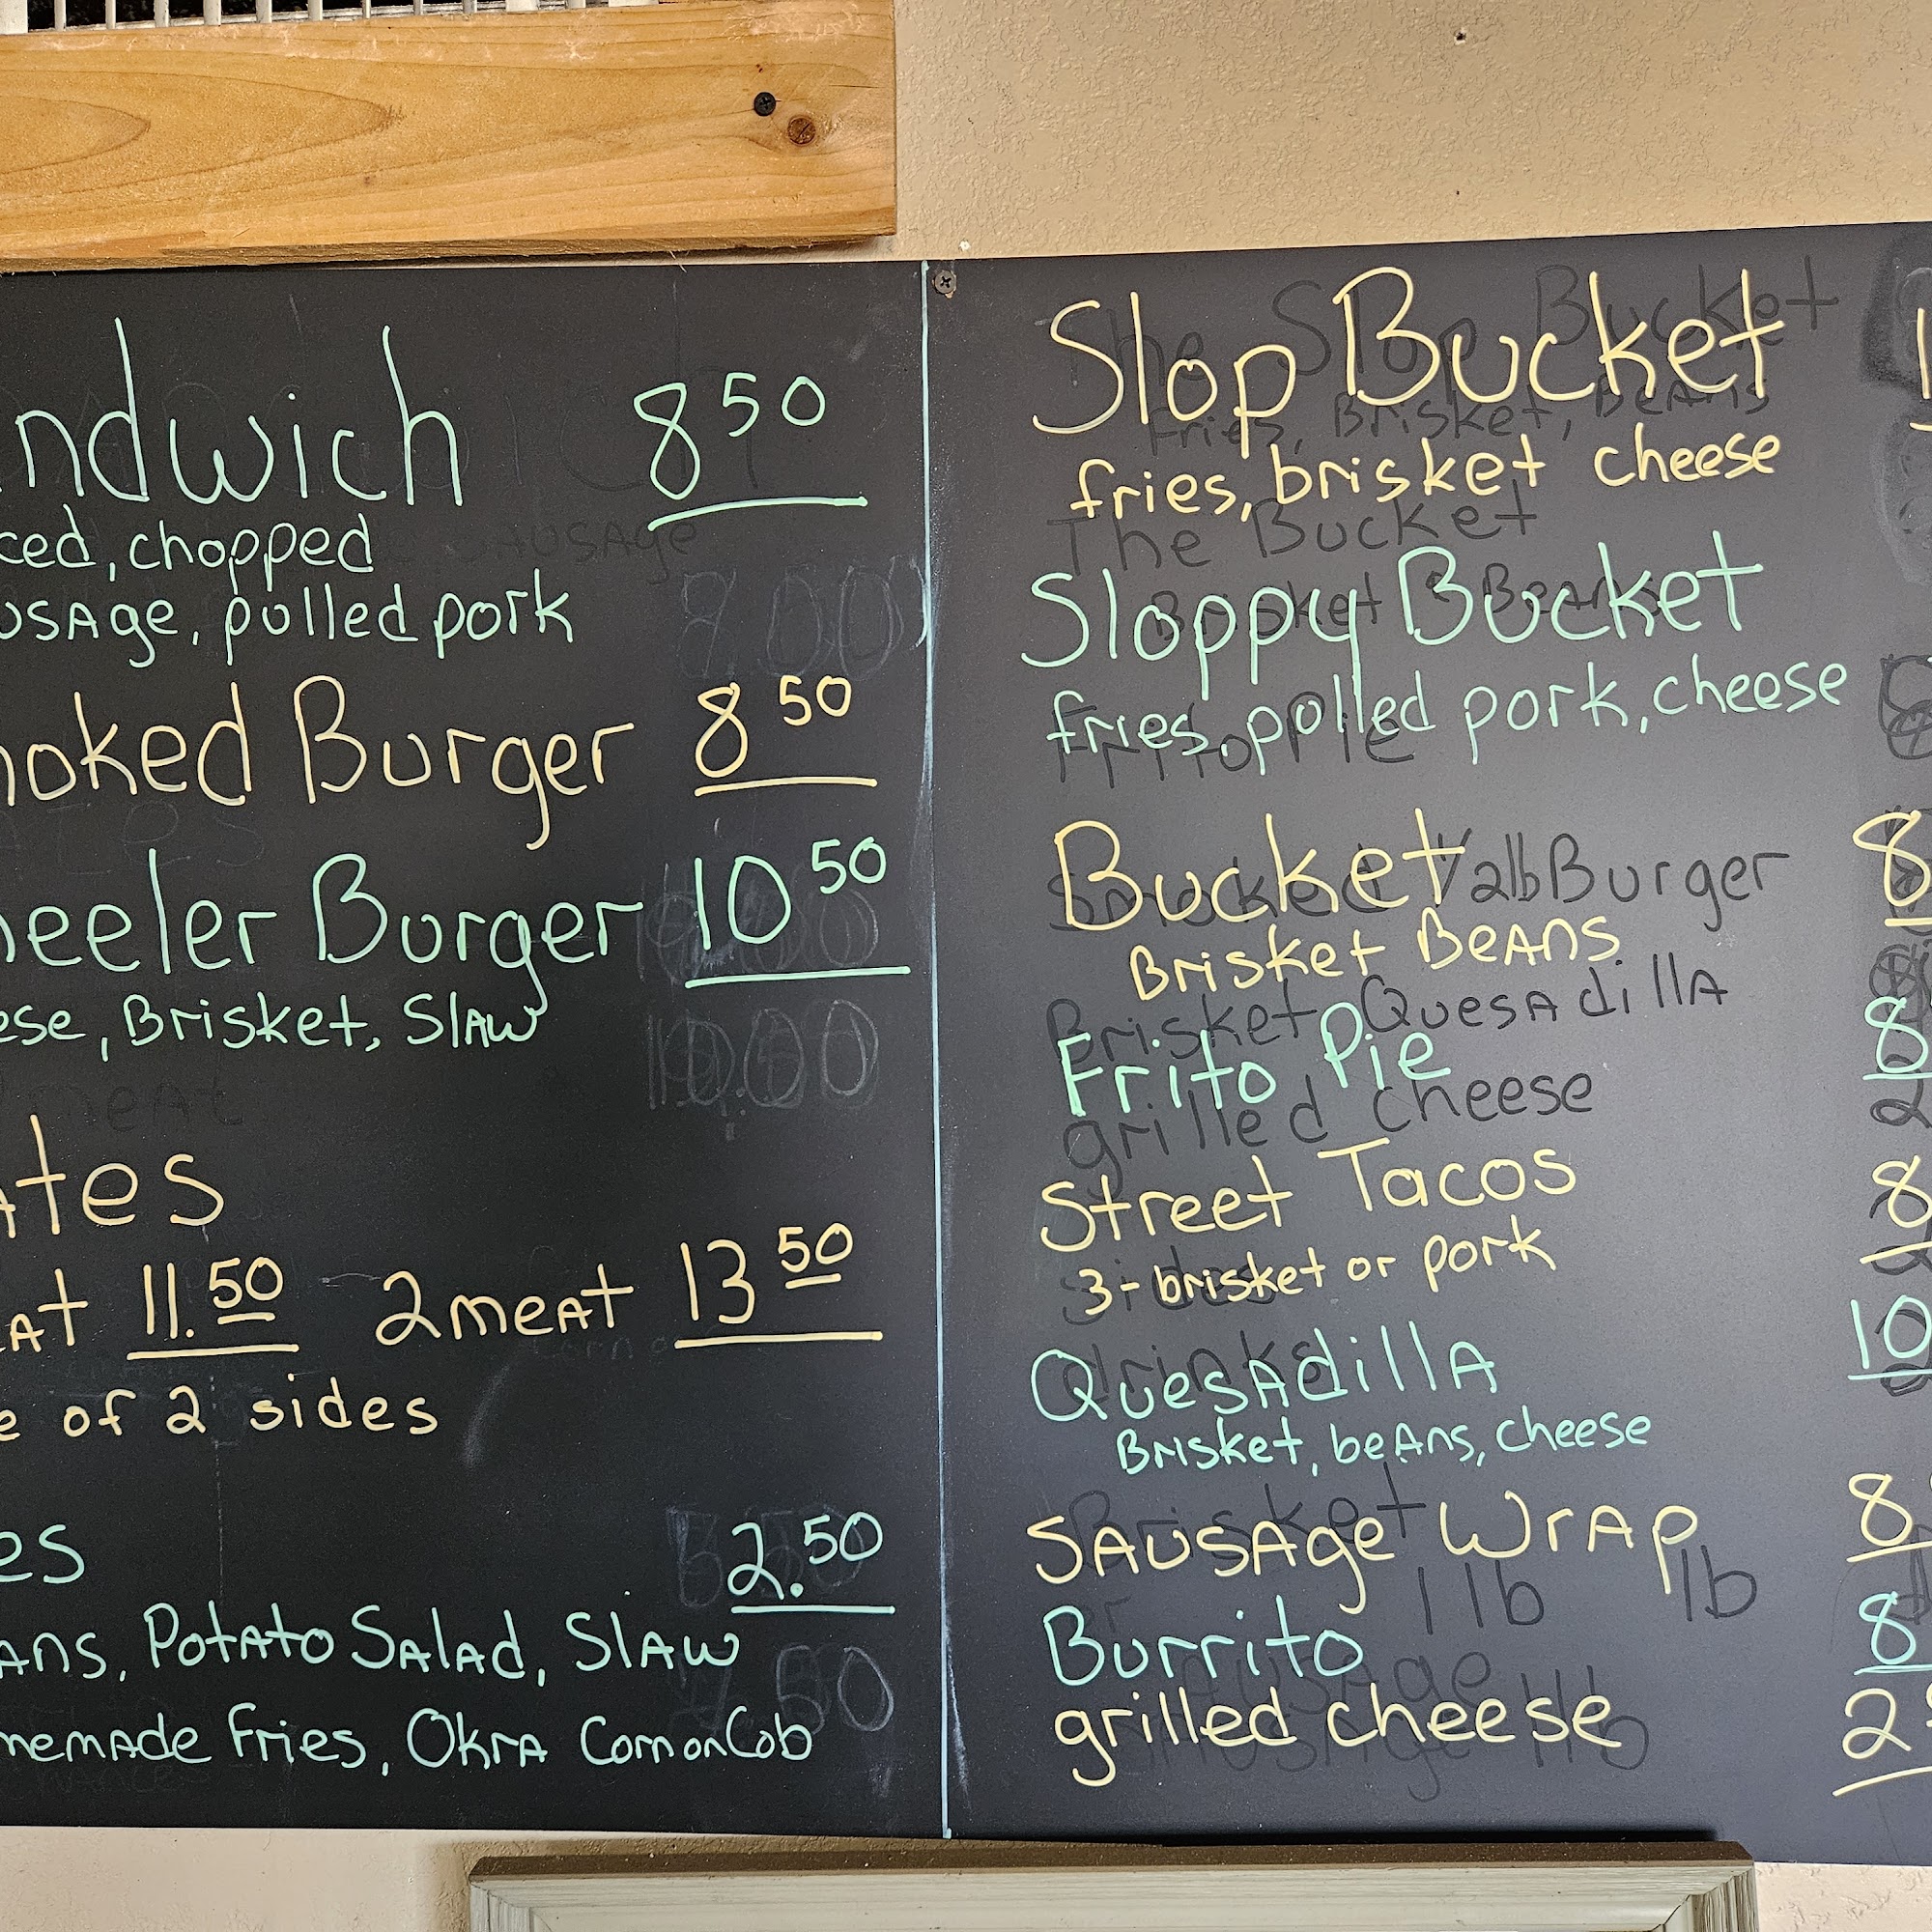 ndwich 8 50
ced, chopped
usage, pulled pork
oked Burger 8 50
heeler Burger 10 50
ese, Brisket, Slaw
ates
at 11.50 2 meat 13 50
e of 2 sides
es 2.50
ans, Potato Salad, Slaw
memade Fries, Okra Corn on Cob
Slop Bucket 1
fries, brisket cheese
Sloppy Bucket
fries, pulled pork, cheese
Bucket 8
Brisket Beans
Frito Pie 8
Street Tacos 8
3- brisket or pork
Quesadilla 10
Brisket, beans, cheese
Sausage Wrap 8
Burrito 8
grilled cheese 2